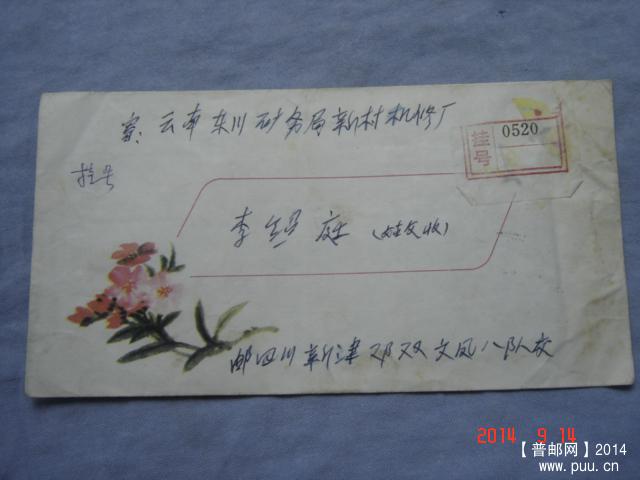 寄：云南东川矿务局新村机修厂
挂号
0520
挂号
李 庭（姪女收）
邮四川新津邓双文凤八队交
2014 9 14
【普邮网】2014
www.puu.cn